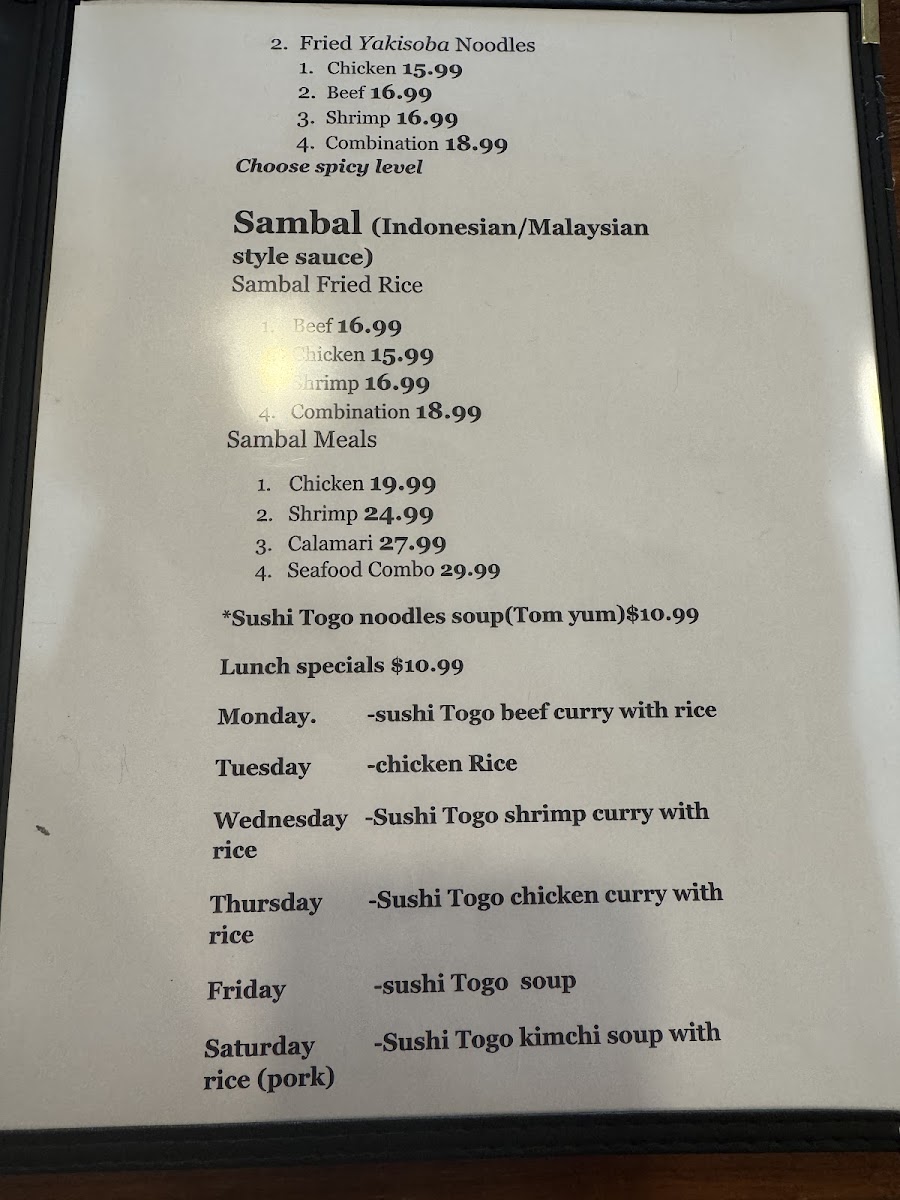 2. Fried Yakisoba Noodles
1. Chicken 15.99
2. Beef 16.99
3. Shrimp 16.99
4. Combination 18.99
Choose spicy level
Sambal (Indonesian/Malaysian
style sauce)
Sambal Fried Rice
1. Beef 16.99
Chicken 15.99
Shrimp 16.99
4. Combination 18.99
Sambal Meals
1. Chicken 19.99
2. Shrimp 24.99
3. Calamari 27.99
4. Seafood Combo 29.99
*Sushi Togo noodles soup(Tom yum)$10.99
Lunch specials $10.99
Monday. -sushi Togo beef curry with rice
Tuesday -chicken Rice
Wednesday -Sushi Togo shrimp curry with
rice
Thursday -Sushi Togo chicken curry with
rice
Friday -sushi Togo soup
Saturday -Sushi Togo kimchi soup with
rice (pork)